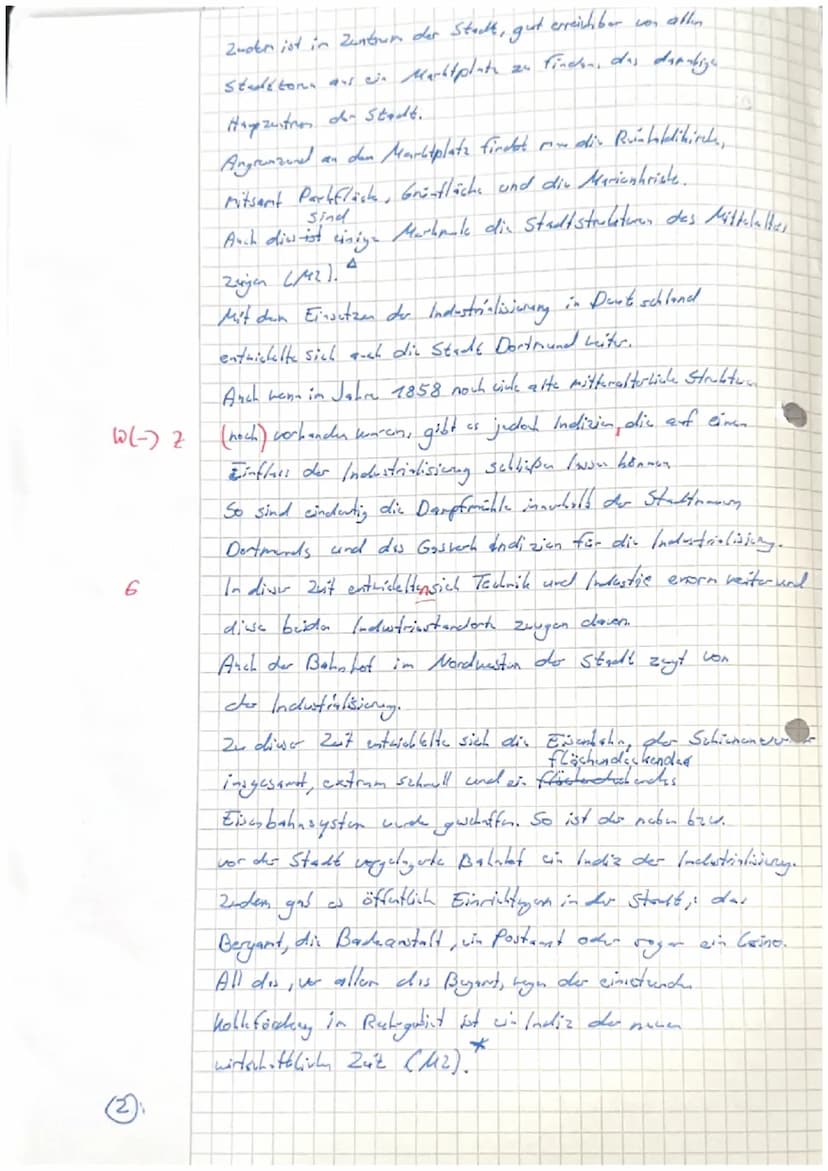 Zudem ist im Zentrum der Stadt, gut erreichbar von allen
Stadttoren aus ein Marktplatz zu finden, das damalige
Hauptzentrum der Stadt.
Angrenzend an den Marktplatz findet man die Reinholdikirche,
mitsamt Parkfläche, Grünfläche und die Marienkriche.
sind
Auch dies ist einige Merkmale die Stadtstrukturen des Mittelalters
zeigen (M2). Δ
Mit dem Einsetzen der Industrialisierung in Deutschland
entwickelte sich auch die Stadt Dortmund weiter.
Auch wenn im Jahre 1858 noch viele alte mittelalterliche Strukturen
W(-) Z (noch) vorhanden waren, gibt es jedoch Indizien, die auf einen
Einfluss der Industrialisierung schließen lassen können.
So sind eindeutig die Dampfmühle innerhalb der Stadtmauern
Dortmunds und das Gaswerk Indizien für die Industrialisierung.
6 In dieser Zeit entwickelten sich Technik und Industie enorm weiter und
diese beiden Industriestandorte zeugen davon.
Auch der Bahnhof im Nordwesten der Stadt zeugt von
der Industrialisierung.
Zu dieser Zeit entwickelte sich die Eisenbahn, der
flächendeckendes
insgesamt, extrem schnell und ein
Eisenbahnsystem wurde geschaffen. So ist der neben bzw.
vor der Stadt vorgelagerte Bahnhof ein Indiz der Industrialisierung.
Zudem gab es öffentlich Einrichtungen in der Stadt; das
Bergamt, die Badeanstalt, ein Postamt oder sogar ein Casino.
All dies, vor allem das Bergamt, wegen der
Kohleförderung im Ruhrgebiet ist ein Indiz der neuen
wirtschaftlichen Zeit (M2). *
(2)